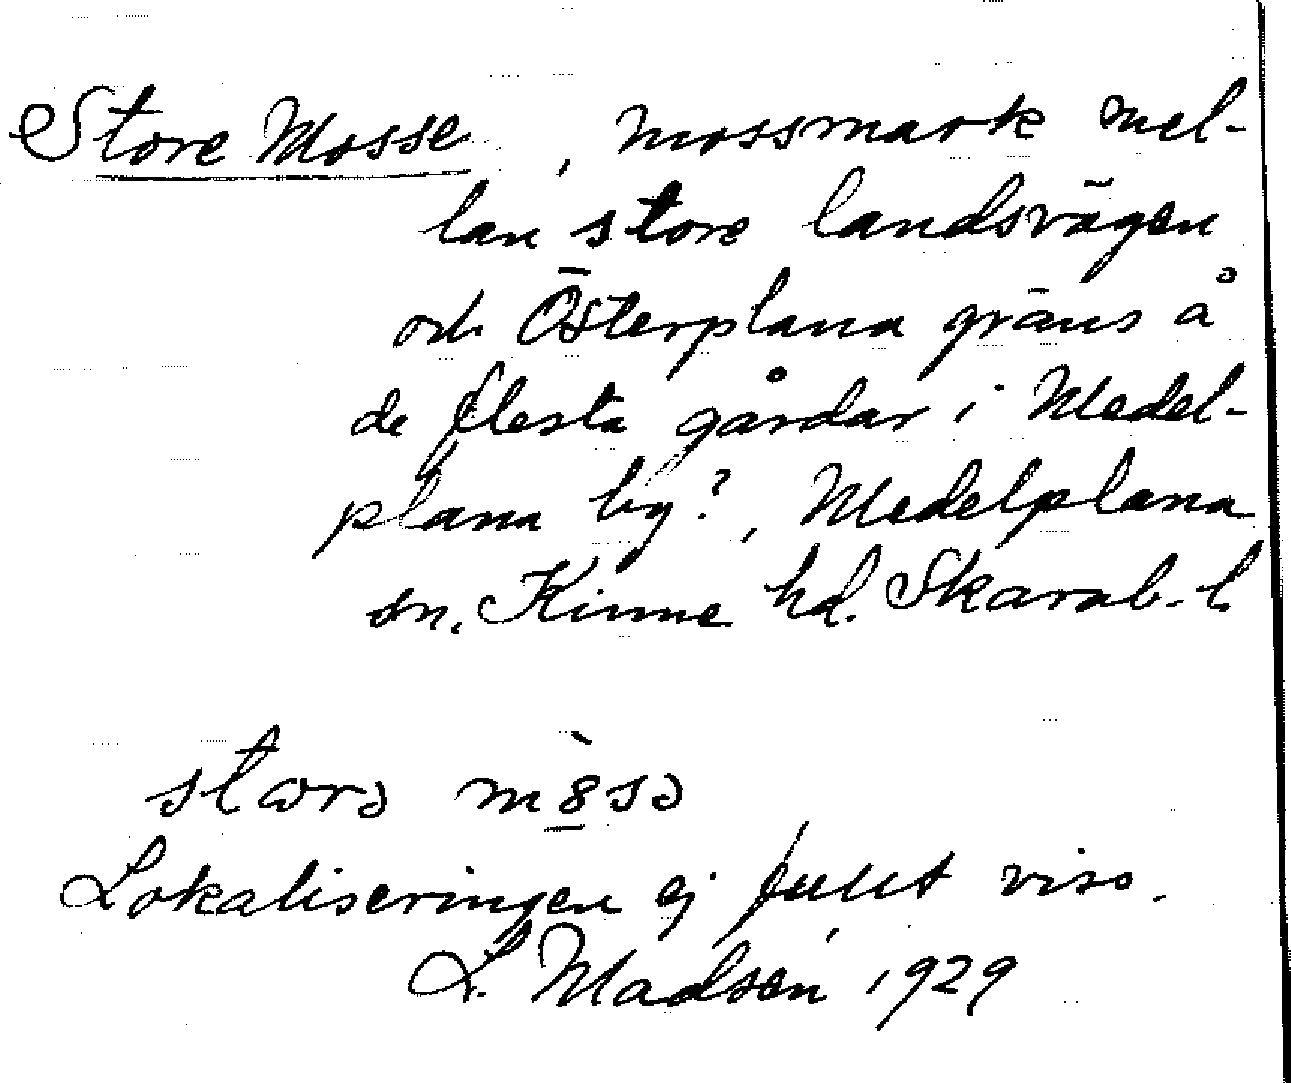 Store Mosse, mossmark mel-
lan store landsvägen
och Österplana gräns å
de flesta gårdar i Medel-
plana by?, Medelplana
sn. Kinne hd. Skarab. l.
stɷrə m8̀sə
Lokaliseringen ej fullt viss.
L. Madsén 1929